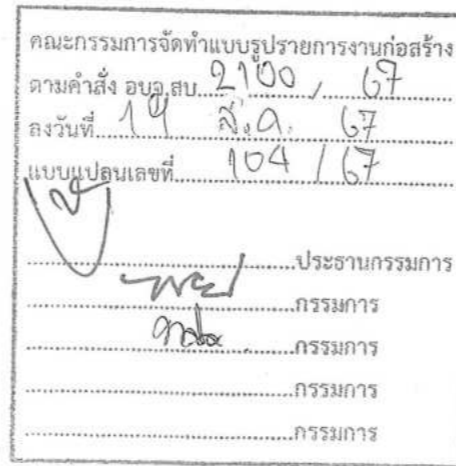 คณะกรรมการจัดทำแบบรูปรายการงานก่อสร้าง
ตามคำสั่ง อบจ.สบ. 2100 / 67
ลงวันที่ 14 ส.ค. 67
แบบแปลนเลขที่ 104 / 67
ประธานกรรมการ
กรรมการ
กรรมการ
กรรมการ
กรรมการ